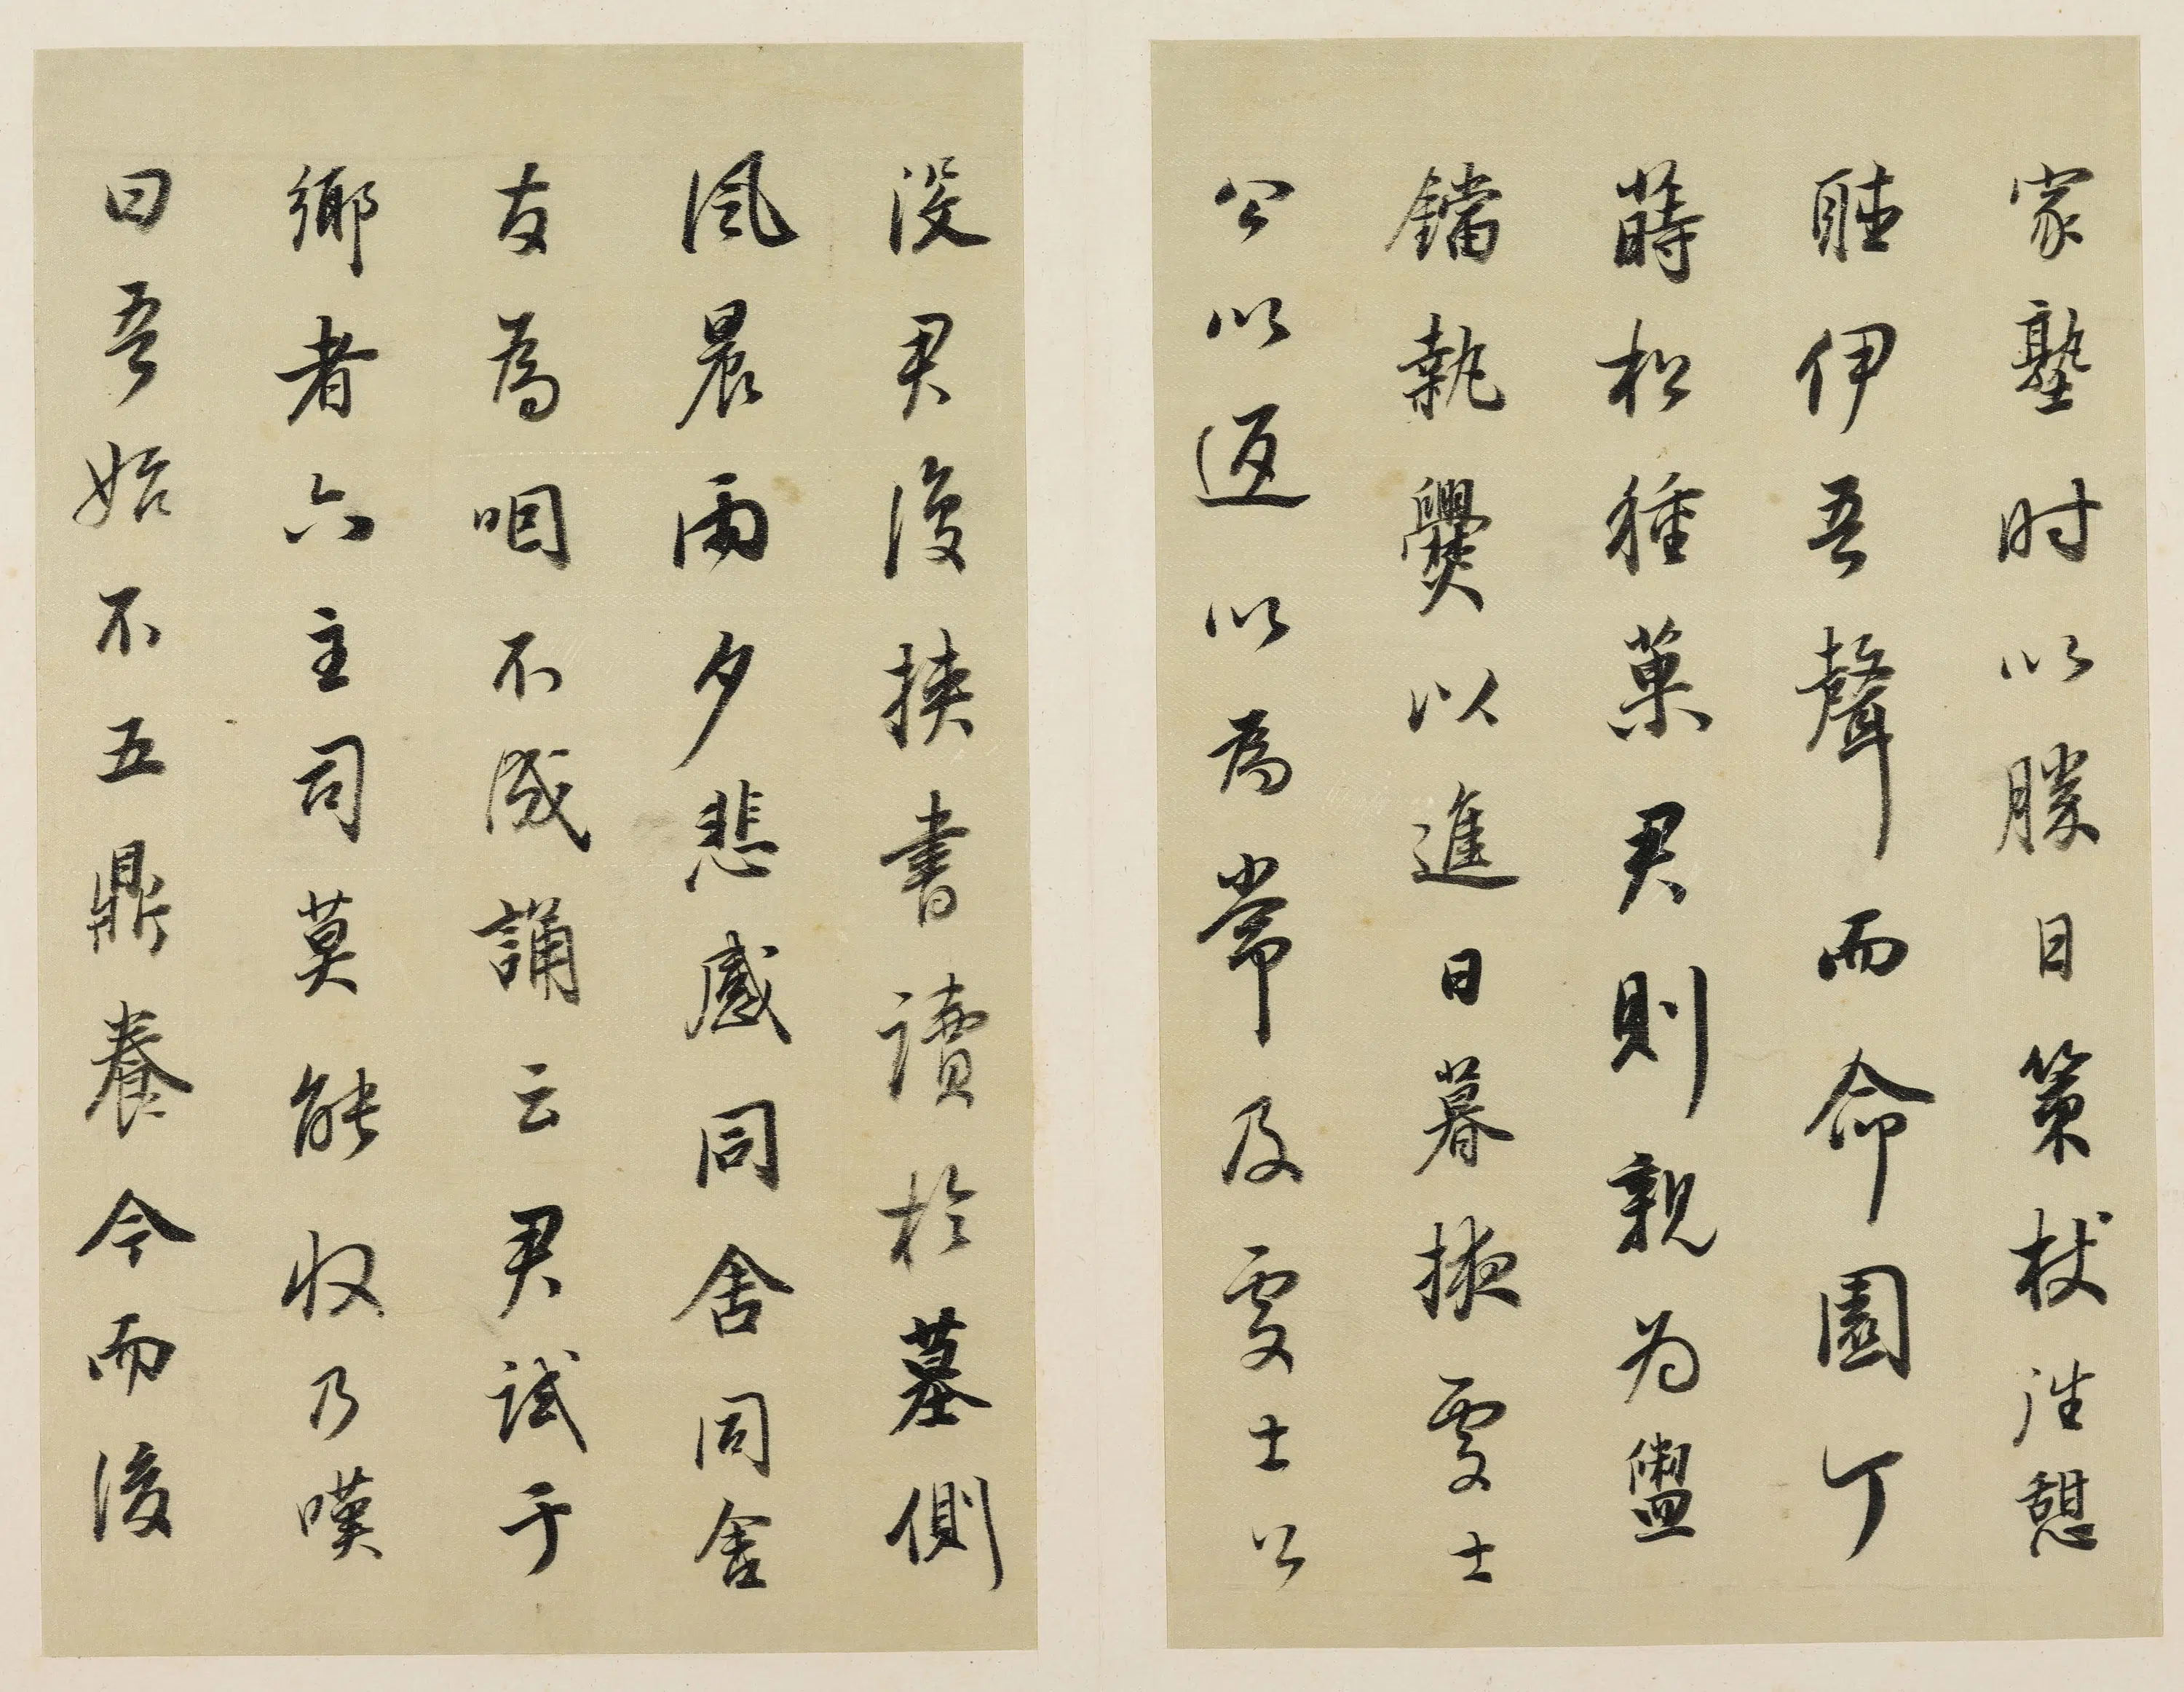 家塾时以勝日策杖往憩
聴伊吾聲而命園丁
蒔松種菓君則親为盥
鐺執爨以進日暮掖處士
公以返以為常及處士公
没君復挾書讀於墓側
風晨雨夕悲感同舍同舍
友為咽不成誦云君試于
鄉者六主司莫能收乃嘆
曰吾始不五鼎養今而後